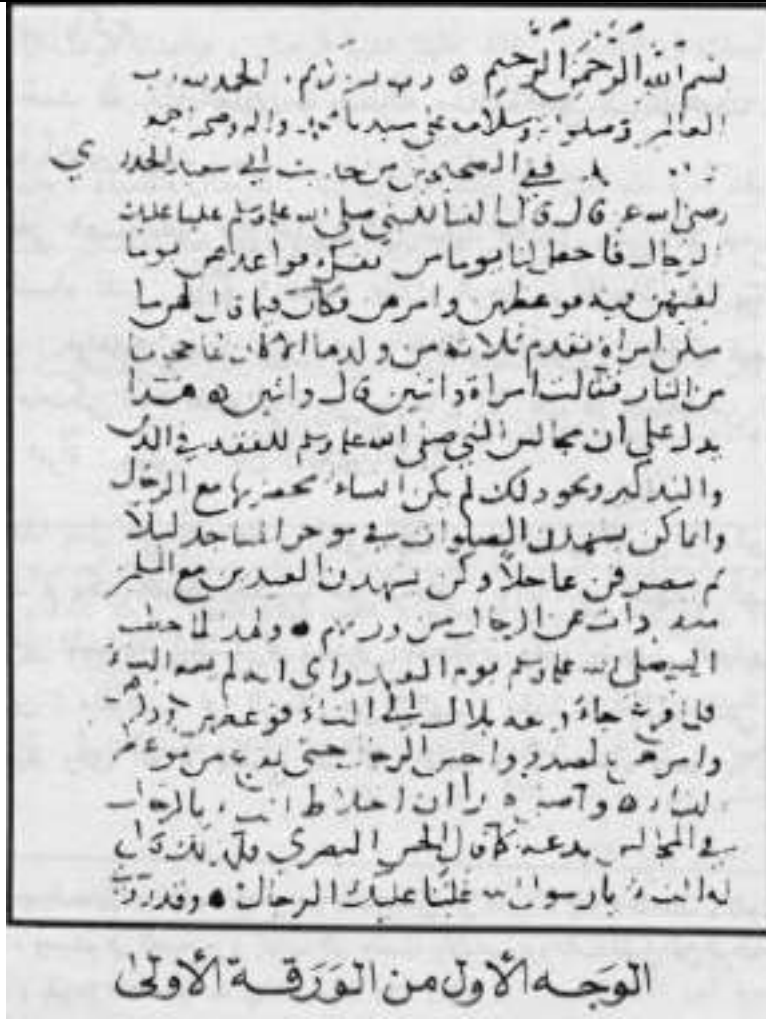 بسم الله الرحمن الرحيم ٥ رب الحمد لله رب
العالمين وصلواته وسلامه على سيدنا محمد واله وصحبه اجمعين
في الصحيحين من حديث ابي سعيد الخدري
رضي الله عنه قال قال النساء للنبي صلى الله عليه وسلم غلبنا عليك
الرجال فاجعل لنا يوما من نفسك فواعدهن يوما
لقيهن فيه فوعظهن وامرهن فكان فيما قال لهن ما
منكن امراة تقدم ثلاثة من ولدها الا كان لها حجابا
من النار فقالت امراة واثنين قال واثنين ٥ هذا
يدل على أن مجالس النبي صلى الله عليه وسلم للتفقه في الدين
والتذكير ونحو ذلك لم يكن النساء يحضرنها مع الرجال
وانما كن يشهدن الصلوات في موخر المساجد ليلا
ثم ينصرفن عاجلا وكن يشهدن العيدين مع المسلمين
منفردات عن الرجال من ورائهم ٥ ولهذا لما خطب
النبي صلى الله عليه وسلم يوم العيد راى انه لم يسمع النساء
فلما فرغ جاء ومعه بلال الى النساء فوعظهن وذكرهن
وامرهن بالصدقة واجلس الرجال حتى
النساء ٥ وأصل هذا أن اختلاط النساء بالرجال
في المجالس بدعة كما قال الحسن البصري فلذلك قال
له النساء يا رسول الله غلبنا عليك الرجال ٥ وقد روي
الوجه الأول من الورقة الأولى